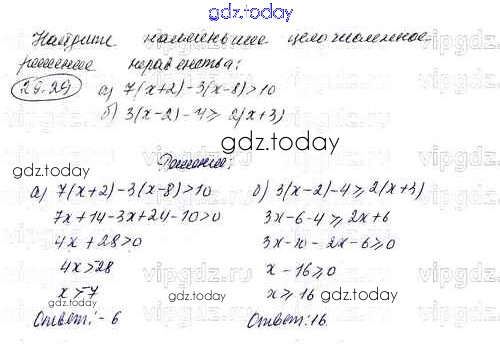 gdz.today
Найдите наименьшее целочисленное
решение неравенства:
29.29) а) 7(x+2)-3(x-8)>10
б) 3(x-2)-4≥2(x+3)
gdz.today
Решение:
а) 7(x+2)-3(x-8)>10 б) 3(x-2)-4≥2(x+3)
7x+14-3x+24-10>0 3x-6-4≥2x+6
4x+28>0 3x-10-2x-6≥0
4x>-28 x-16≥0
x>-7 x≥16
gdz.today gdz.today
Ответ: -6 Ответ: 16.